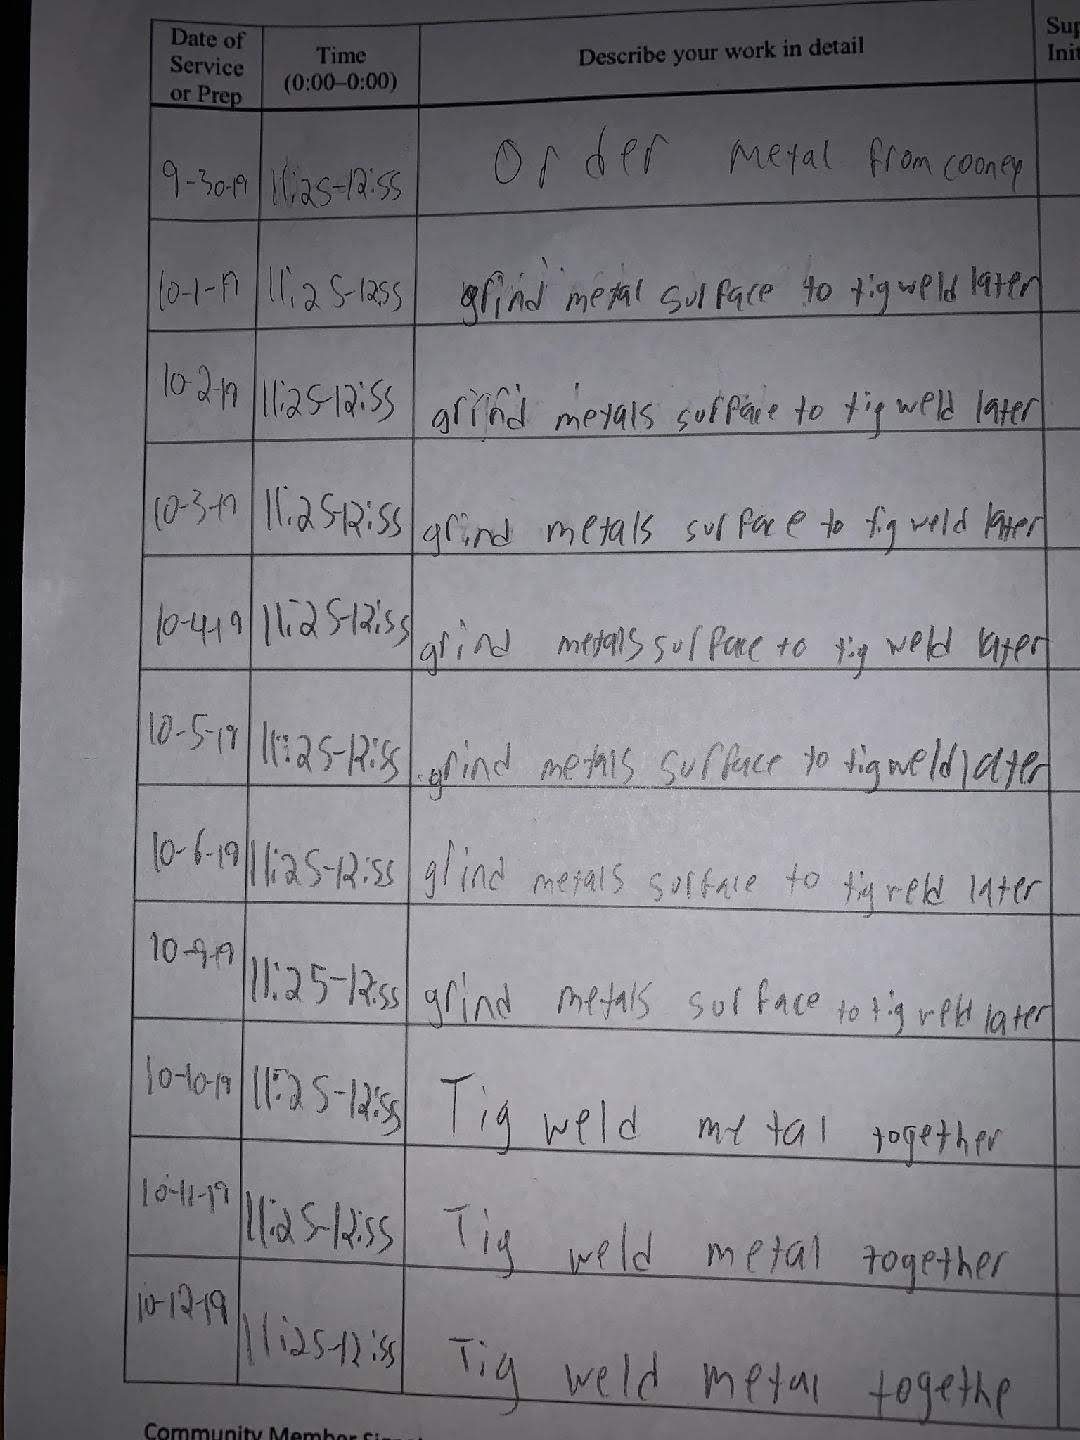 Date of Service or Prep Time (0:00–0:00) Describe your work in detail Sup Init
9-30-19 11:25-12:55 Order metal from cooney
10-1-19 11:25-12:55 grind metal surface to tig weld later
10-2-19 11:25-12:55 grind metals surface to tig weld later
10-3-19 11:25-12:55 grind metals surface to tig weld later
10-4-19 11:25-12:55 grind metals surface to tig weld later
10-5-19 11:25-12:55 grind metals surface to tig weld later
10-6-19 11:25-12:55 grind metals surface to tig weld later
10-9-19 11:25-12:55 grind metals surface to tig weld later
10-10-19 11:25-12:55 Tig weld metal together
10-11-19 11:25-12:55 Tig weld metal together
10-12-19 11:25-12:55 Tig weld metal togethe
Community Member